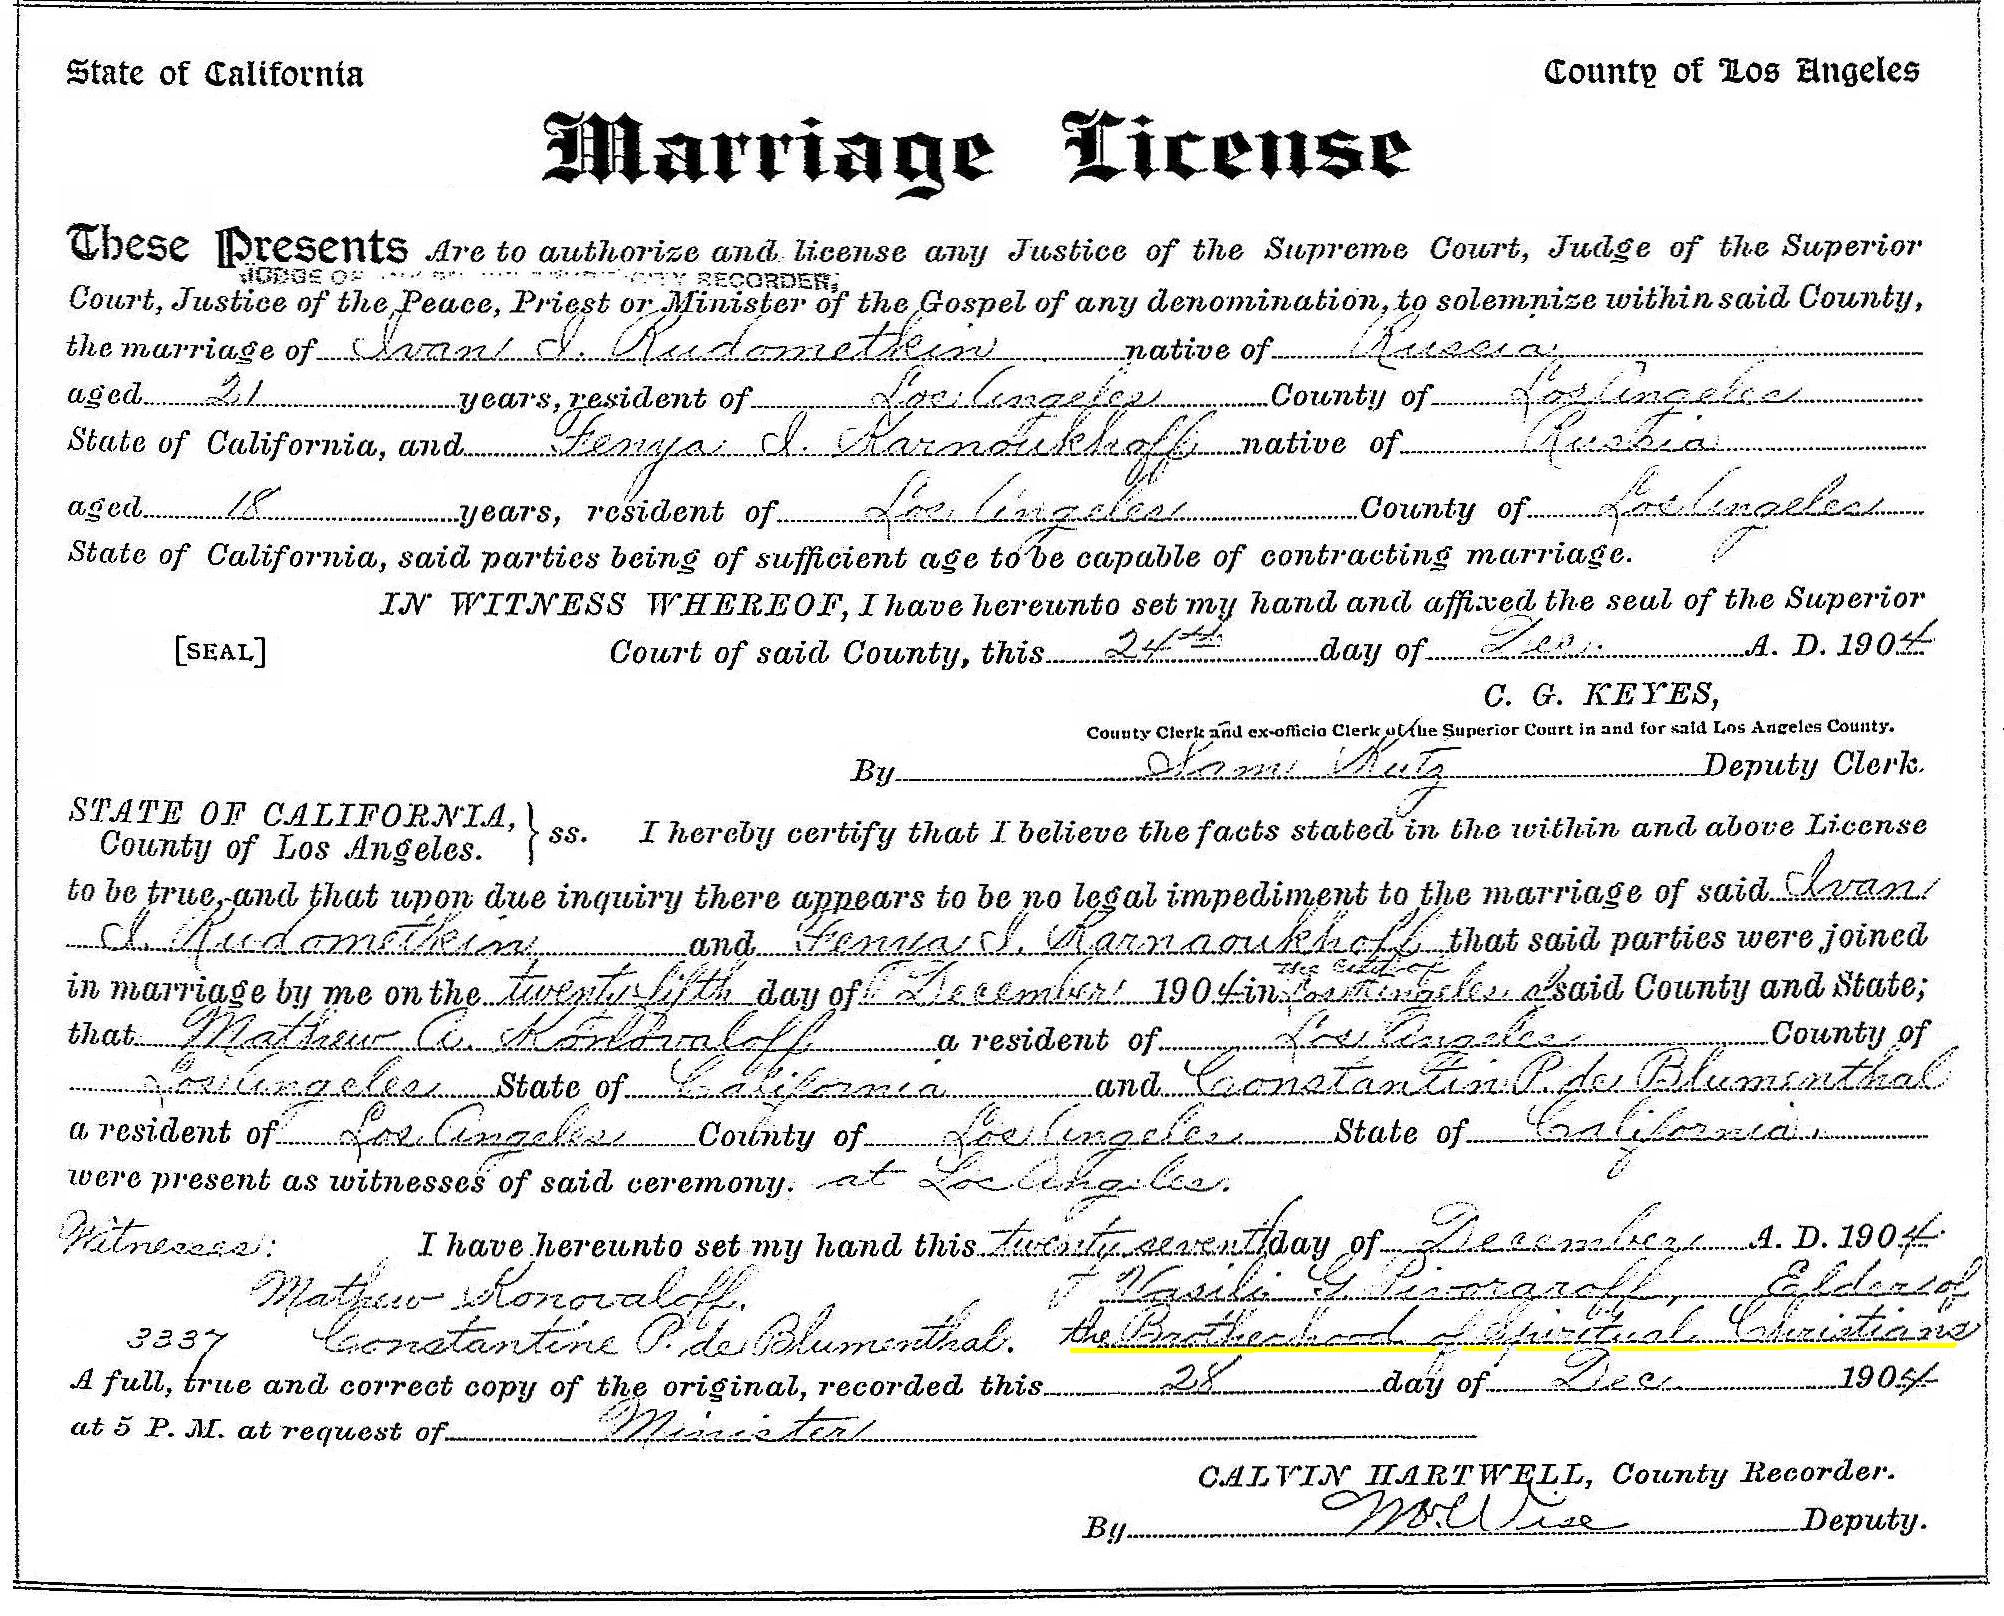 State of California County of Los Angeles
Marriage License
These Presents Are to authorize and license any Justice of the Supreme Court, Judge of the Superior
JUDGE OF RECORDER,
Court, Justice of the Peace, Priest or Minister of the Gospel of any denomination, to solemnize within said County,
the marriage of Ivan I. Rudometkin native of Russia
aged 21 years, resident of Los Angeles County of Los Angeles
State of California, and Fenya I. Karnoukhoff native of Russia
aged 18 years, resident of Los Angeles County of Los Angeles
State of California, said parties being of sufficient age to be capable of contracting marriage.
IN WITNESS WHEREOF, I have hereunto set my hand and affixed the seal of the Superior
[SEAL] Court of said County, this 24th day of Dec. A. D. 1904
C. G. KEYES,
County Clerk and ex-officio Clerk of the Superior Court in and for said Los Angeles County.
By Sam Kutz Deputy Clerk.
STATE OF CALIFORNIA, County of Los Angeles. } ss. I hereby certify that I believe the facts stated in the within and above License
to be true, and that upon due inquiry there appears to be no legal impediment to the marriage of said Ivan
I. Rudometkin and Fenya I. Karnaoukhoff that said parties were joined
in marriage by me on the twenty fifth day of December 1904 in the city of Los Angeles said County and State;
that Mathew A. Konovaloff a resident of Los Angeles County of
Los Angeles State of California and Constantin P. de Blumenthal
a resident of Los Angeles County of Los Angeles State of California.
were present as witnesses of said ceremony. at Los Angeles.
Witnesses: I have hereunto set my hand this twenty seventh day of December A. D. 1904
Mathew Konovaloff. Vasili G. Pivorgroff, Elder of
3337 Constantine P. de Blumenthal. the Brotherhood of Spiritual Christians
A full, true and correct copy of the original, recorded this 28 day of Dec. 1904
at 5 P. M. at request of Minister
CALVIN HARTWELL, County Recorder.
By Wise Deputy.